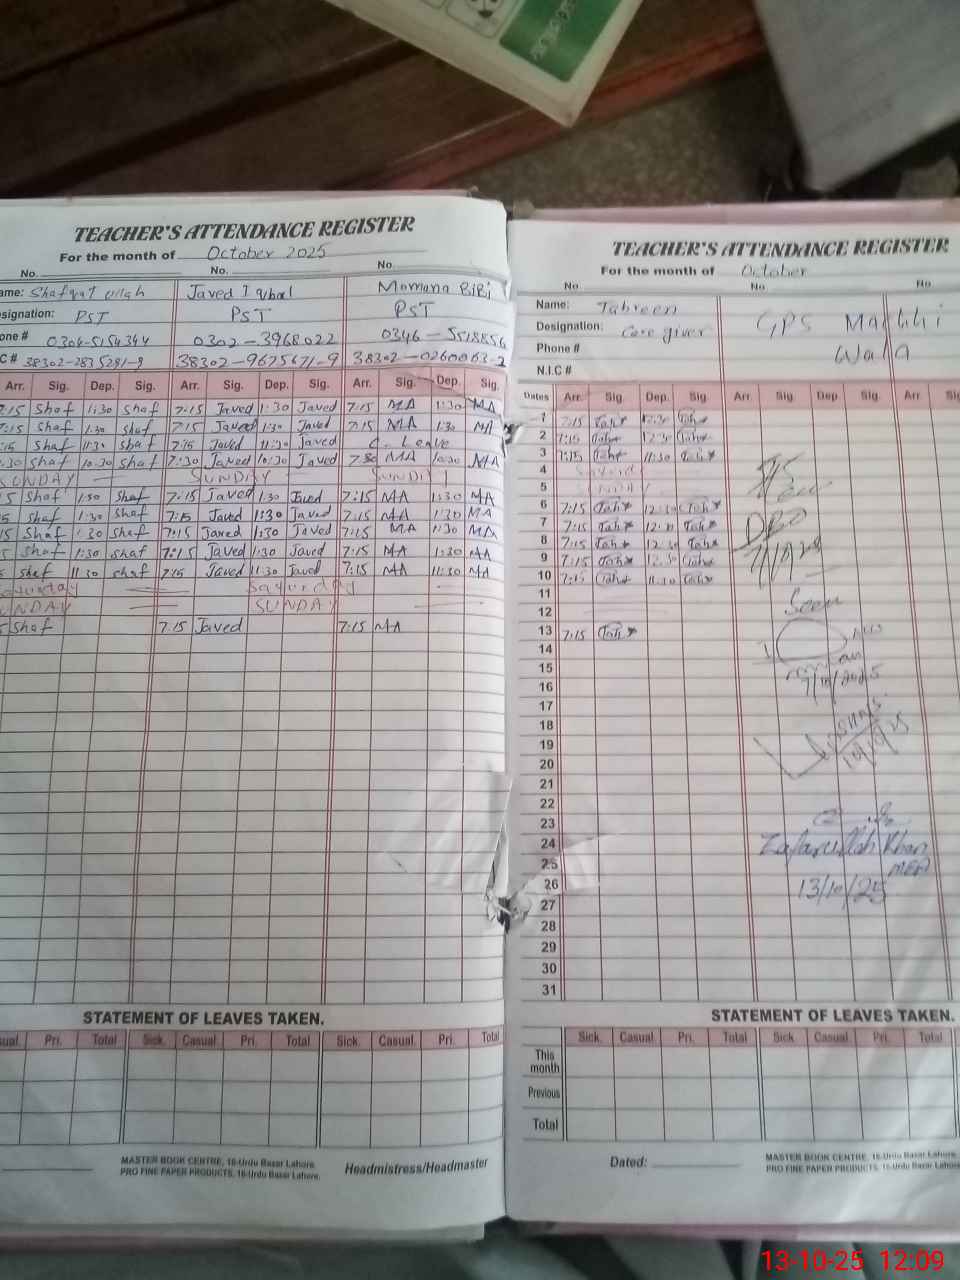 TEACHER'S ATTENDANCE REGISTER
For the month of October 2025
No. No. No.
ame: Shafqat ullah Javed Iqbal Momana BiBi
esignation: PST PST PST
one # 0304-5154344 0302-3968022 0346-5518856
C# 38302-2835291-9 38302-9675671-9 38302-0260063-2
Arr. Sig. Dep. Sig. Arr. Sig. Dep. Sig. Arr. Sig. Dep. Sig.
7:15 Shaf 1:30 Shaf 7:15 Javed 1:30 Javed 7:15 MA 1:30 MA
7:15 Shaf 1:30 Shaf 7:15 Javed 1:30 Javed 7:15 MA 1:30 MA
:15 Shaf 11:30 Shaf 7:15 Javed 11:30 Javed C. Leave
:30 Shaf 10:30 Shaf 7:30 Javed 10:30 Javed 7:30 MA 10:30 MA
SUNDAY SUNDAY SUNDAY
5 Shaf 1:30 Shaf 7:15 Javed 1:30 Javed 7:15 MA 1:30 MA
5 Shaf 1:30 Shaf 7:15 Javed 1:30 Javed 7:15 MA 1:30 MA
15 Shaf 1:30 Shaf 7:15 Javed 1:30 Javed 7:15 MA 1:30 MA
5 Shaf 1:30 Shaf 7:15 Javed 1:30 Javed 7:15 MA 1:30 MA
5 Shaf 11:30 Shaf 7:15 Javed 11:30 Javed 7:15 MA 11:30 MA
Sayurday
UNDAY SUNDAY
5 Shaf 7:15 Javed 7:15 MA
STATEMENT OF LEAVES TAKEN.
sual. Pri. Total Sick. Casual. Pri. Total Sick. Casual. Pri. Total
MASTER BOOK CENTRE, 16-Urdu Bazar Lahore.
PRO FINE PAPER PRODUCTS, 16-Urdu Bazar Lahore.
Headmistress/Headmaster
TEACHER'S ATTENDANCE REGISTER
For the month of October
No. No. No.
Name: Tahreen
Designation: Care giver GPS Makhhi
Phone # Wala
N.I.C #
Dates Arr. Sig. Dep. Sig. Arr. Sig. Dep. Sig. Arr. Sig
1 7:15 Tah 12:30 Tah
2 7:15 Tah 12:30 Tah
3 7:15 Tah 11:30 Tah
4
5
6 7:15 Tah 12:30 Tah
7 7:15 Tah 12:30 Tah
8 7:15 Tah 12:30 Tah
9 7:15 Tah 12:30 Tah
10 7:15 Tah 11:30 Tah
11
12
13 7:15 Tah
14
15
16
17
18
19
20
21
22
23
24
25
26
27
28
29
30
31
Seen
7/10/2025
10/10/25
Zafarullah Khan
MEA
13/10/25
STATEMENT OF LEAVES TAKEN.
Sick. Casual. Pri. Total Sick Casual. Pri. Total
This month
Previous
Total
Dated:
MASTER BOOK CENTRE, 16-Urdu Bazar Lahore
PRO FINE PAPER PRODUCTS, 16-Urdu Bazar Lahore
13-10-25 12:09